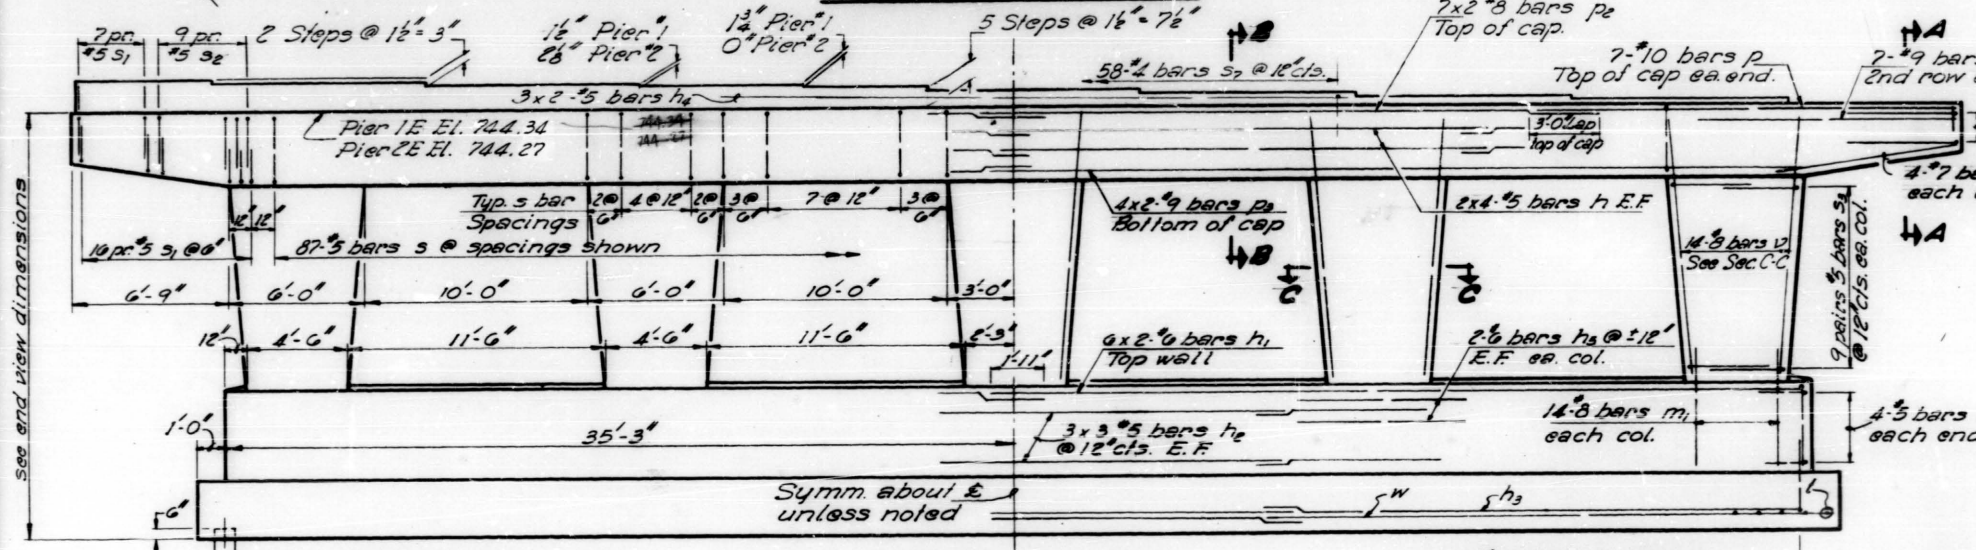 7 pr.
#5 s1
9 pr.
#5 s2
2 Steps @ 1½" = 3"
1½" Pier #1
2⅛" Pier #2
1¾" Pier #1
0" Pier #2
5 Steps @ 1½" = 7½"
B
7x2 #8 bars p2
Top of cap.
58-#4 bars s7 @ 12" cts.
7-#10 bars p
Top of cap ea. end.
A
7-#9 bars
2nd row
3x2-#5 bars h4
Pier 1E El. 744.34
Pier 2E El. 744.27
3'-0" Lap
Top of cap
see end view dimensions
Typ. s bar
Spacings
2@
6"
4@12"
2@
6"
3@
6"
7@12"
3@
6"
4x2-#9 bars p3
Bottom of cap
2x4-#5 bars h E.F.
each
12"
12"
16 pr. #5 s1 @ 6"
87-#5 bars s @ spacings shown
B
14-#8 bars v
See Sec. C-C
9 pairs #5 bars s3
@ 12" cts. ea. col.
A
C
C
6'-9"
6'-0"
10'-0"
6'-0"
10'-0"
3'-0"
12"
4'-6"
11'-6"
4'-6"
11'-6"
2'-3"
1'-11"
6x2-#6 bars h1
Top wall
2-#6 bars h5 @ ±12"
E.F. ea. col.
1'-0"
35'-3"
3x3 #5 bars h2
@ 12" cts. E.F.
14-#8 bars m1
each col.
4-#5 bars
each end
6"
Symm. about ℄
unless noted
w
h3